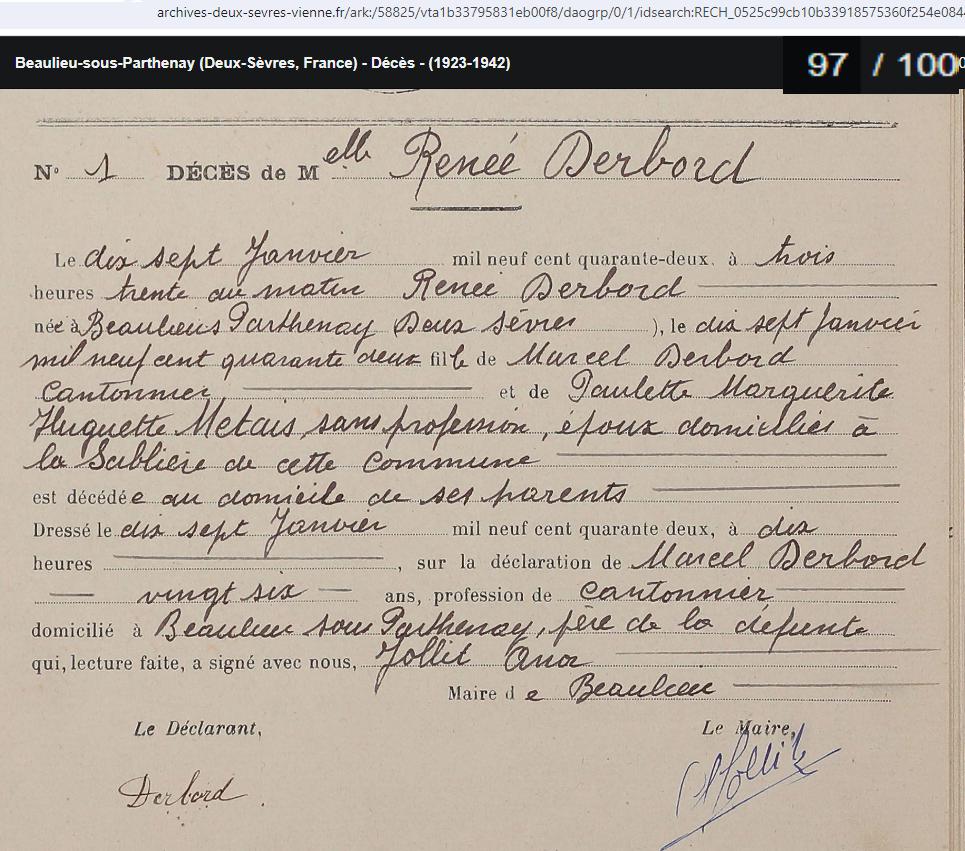 archives-deux-sevres-vienne.fr/ark:/58825/vta1b33795831eb00f8/daogrp/0/1/idsearch:RECH_0525c99cb10b33918575360f254e084
Beaulieu-sous-Parthenay (Deux-Sèvres, France) - Décès - (1923-1942)
97 / 100
N° 1 DÉCÈS de Melle Renée Derbord
Le dix sept Janvier mil neuf cent quarante-deux, à trois
heures trente au matin Renée Derbord
née à Beaulieu s Parthenay Deux Sèvres ), le dix sept Janvier
mil neuf cent quarante deux fille de Marcel Derbord
Cantonnier et de Paulette Marguerite
Huguette Metais, sans profession, époux domiciliés à
la Sablière de cette Commune
est décédée au domicile de ses parents
Dressé le dix sept Janvier mil neuf cent quarante deux, à dix
heures , sur la déclaration de Marcel Derbord
vingt six ans, profession de Cantonnier
domicilié à Beaulieu sous Parthenay, père de la défunte
qui, lecture faite, a signé avec nous, Jollit
Maire de Beaulieu
Le Déclarant, Le Maire,
Derbord Jollit